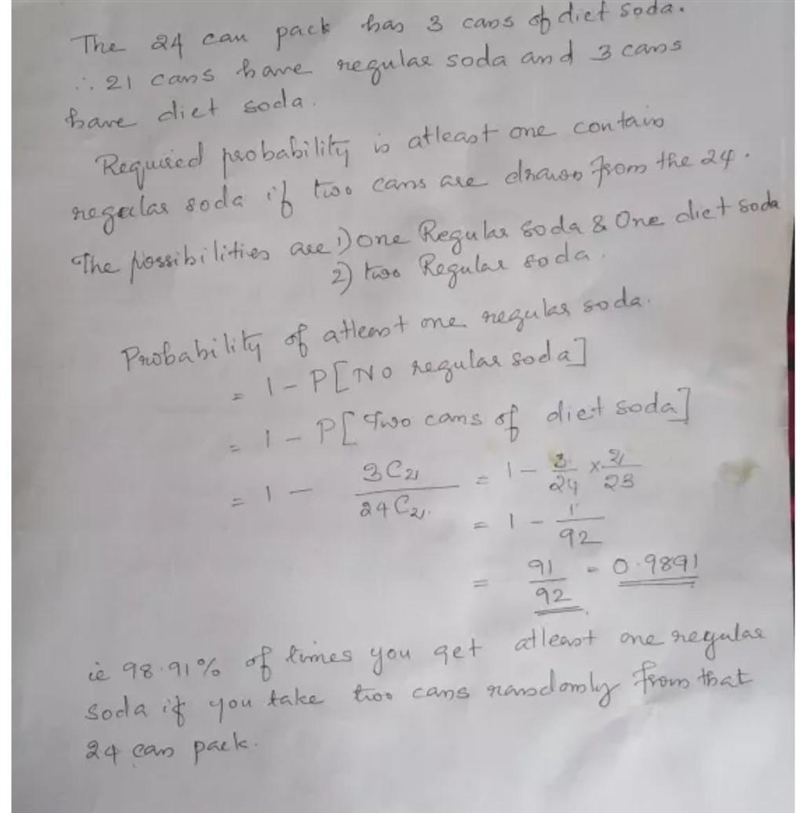 The 24 can pack has 3 cans of diet soda.
∴ 21 cans have regular soda and 3 cans
have diet soda.
Required probability is atleast one contain
regular soda if two cans are drawn from the 24.
The possibilities are 1) one Regular soda & One diet soda
2) two Regular soda.
Probability of atleast one regular soda.
= 1 - P[No regular soda]
= 1 - P[Two cans of diet soda]
= 1 - 3C2/24C2 = 1 - 3/24 × 2/23
= 1 - 1/92
= 91/92 = 0.9891
ie 98.91% of times you get atleast one regular
soda if you take two cans randomly from that
24 can pack.